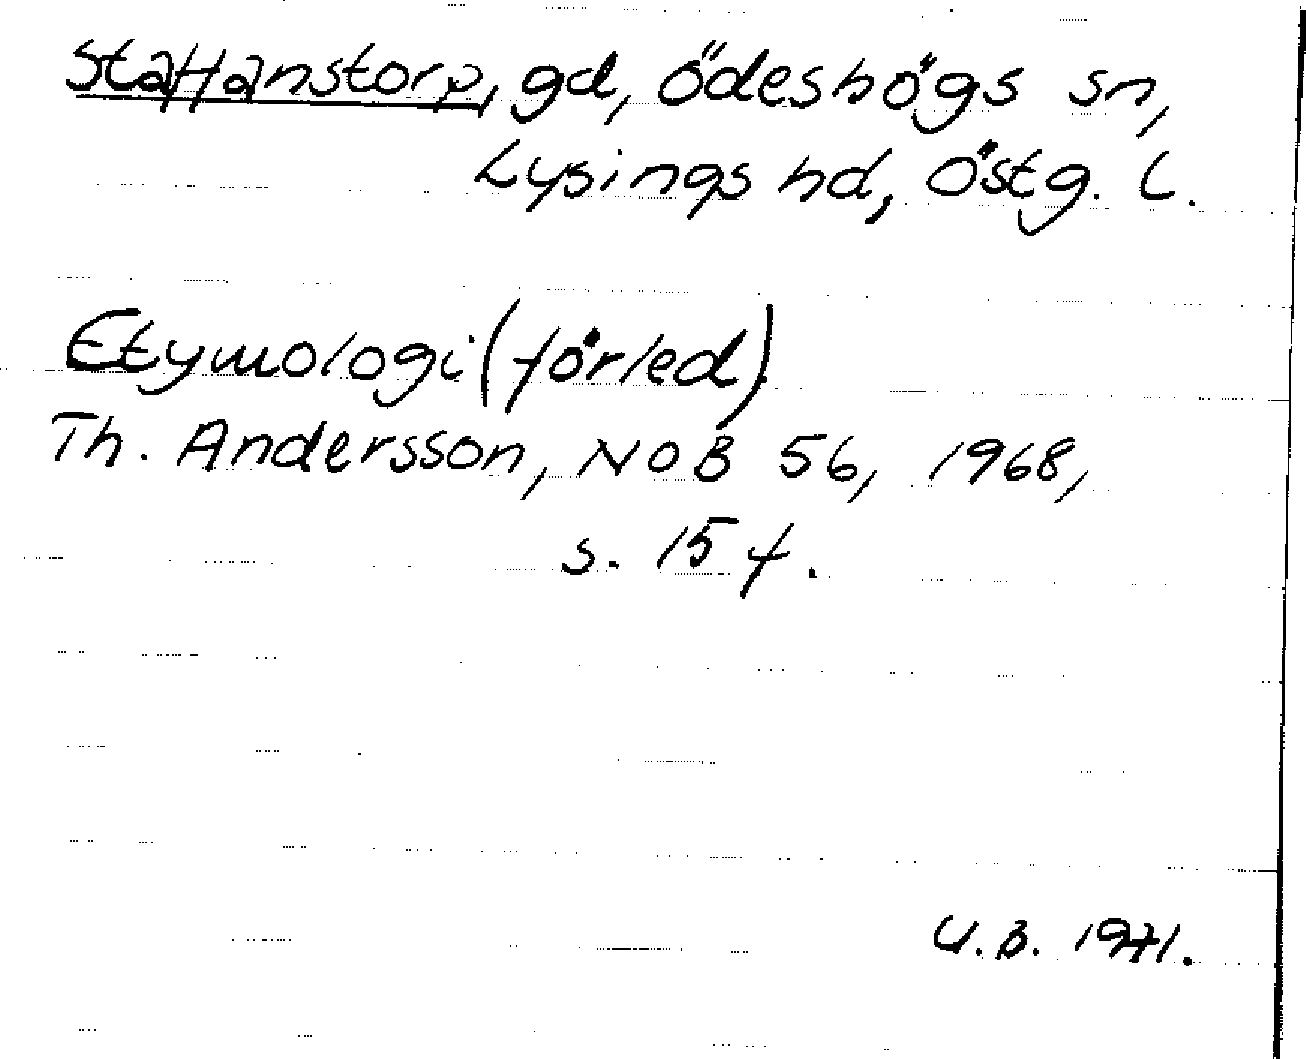 Staffanstorp, gd, Ödeshögs sn,
Lysings hd, Östg. l.
Etymologi (förled).
Th. Andersson, NoB 56, 1968,
s. 15 f.
U.B. 1971.